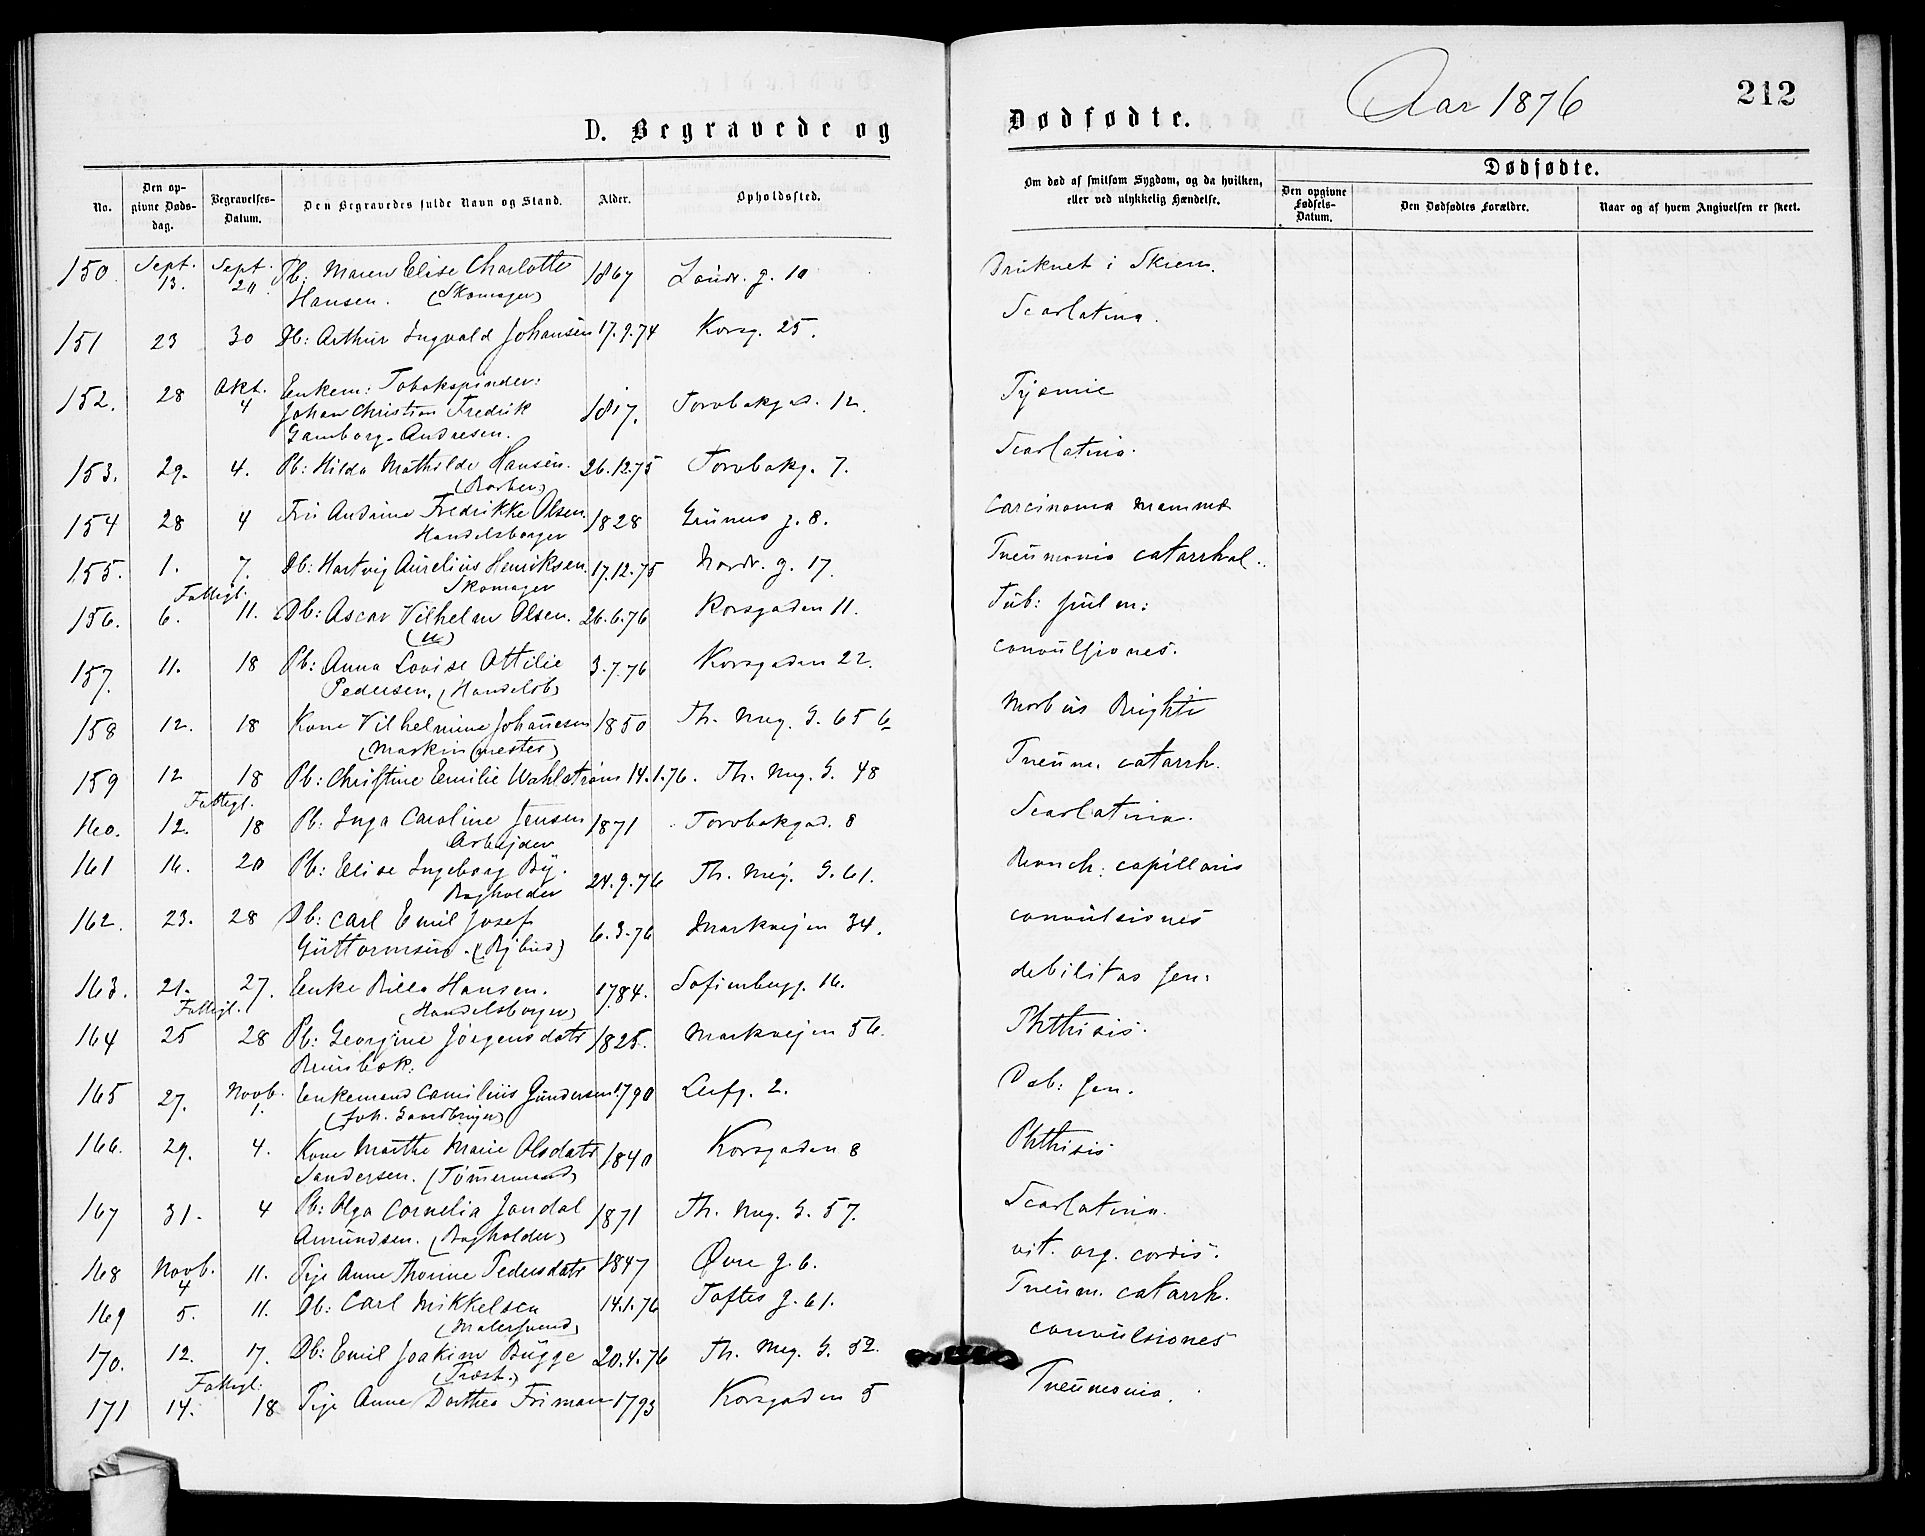 Aar 1876
212
D. Begravede og Dødfødte.
No. Den opgivne Dødsdag. Begravelses-Datum. Den Begravedes fulde Navn og Stand. Alder. Opholdssted. Om død af smitsom Sygdom, og da hvilken, eller ved ulykkelig Hændelse. Dødfødte. Den opgivne Fødsels-Datum. Den Dødfødtes Forældre. Naar og af hvem Angivelsen er skeet.
150. Sept. 13. Sept. 20 Pb: Maren Elise Charlotte 1867 g. 10 Druknet i Skien.
Hansen. (Skomager)
151 23 30 Db: Arthur Ingvald Johansen 17.9.74 Korsg. 25. Scarlatina.
152. 28 Okt. 4 Enkem: Tobakspinder: 1817. Torvbakgad. 12. Pyæmie
Johan Christian Fredrik
Gamborg-Andresen.
153. 29. 4. Pb: Hilda Mathilde Hansen. 26.12.75 Torvbakg. 7. Scarlatina.
(Barber)
154 28 4 Andrine Fredrikke Olsen. 1828 Grüners g. 8. Carcinoma mammæ
Handelsborger
155. 1. 7. Db: Hartvig Aurelius Henriksen. 17.12.75 Nordr. g. 17. Pneumonia catarrhal.
Skomager
Fattigl.
156. 6. 11. Db: Oscar Vilhelm Olsen. 26.6.76 Korsgaden 11. Tub: pulm:
(u)
157. 11. 18 Pb: Anna Lovise Attilie 3.7.76 Korsgaden 22. convulsiones.
Pedersen. (Handelsb)
158 12. 18 Kone Vilhelmine Johanesen 1850 Th. Mey. G. 65 b Morbus Brighti
(Maskinmester)
159 12 18 Pb: Christine Emilie Wahlstrøm 14.1.76. Th. Mey. G. 48 Pneum. catarrh.
Fattigl.
160. 12. 18 Pb: Inga Caroline Jensen 1871 Torvbakgad. 8 Scarlatina.
Arbejder
161 16. 20 Pb: Elise Ingeborg By. 24.9.76 Th. Mey. G. 61. Bronch: capillaris
Bogholder
162. 23. 28 Db: Carl Emil Josef 6.3.76 Markvejen 34. convulsiones
Guttormsen. (Bybud)
163. 21. 27. Enke Hansen. 1784. Sofienbergg. 16. debilitas sen:
(Handelsborger)
Fattigl.
164 25 28 Pb: Georgine Jørgensdatr 1825. Markvejen 56. Phthisis.
165 27. Novb. 1. Enkemand Camilius Gundersen 1790 Leirfg. 2. Deb: sen.
166. 29. 4. Kone Marthe Marie Olsdatr 1840 Korsgaden 8 Phthisis
Sandersen. (Tømmermand)
167 31. 4 Pb: Olga Cornelia Jandal 1871 Th. Mey. G. 57. Scarlatina.
Amundsen. (Bogholder)
168 Novb. 4 11. Pige Anne Thorine Pedersdatr 1847 Øvre g. 6. vit. org. cordis.
169 5. 11. Db: Carl Mikkelsen 14.1.76 Toftes g. 61. Pneum. catarrh.
(Malersvend)
170. 12. 17. Db: Emil Joakim Bugge 20.4.76 Th. Mey. G. 52. convulsiones
Fattigl.
171 14. 18 Pige Anne Dorthea Friman 1793 Korsgaden 5 Pneumonia.